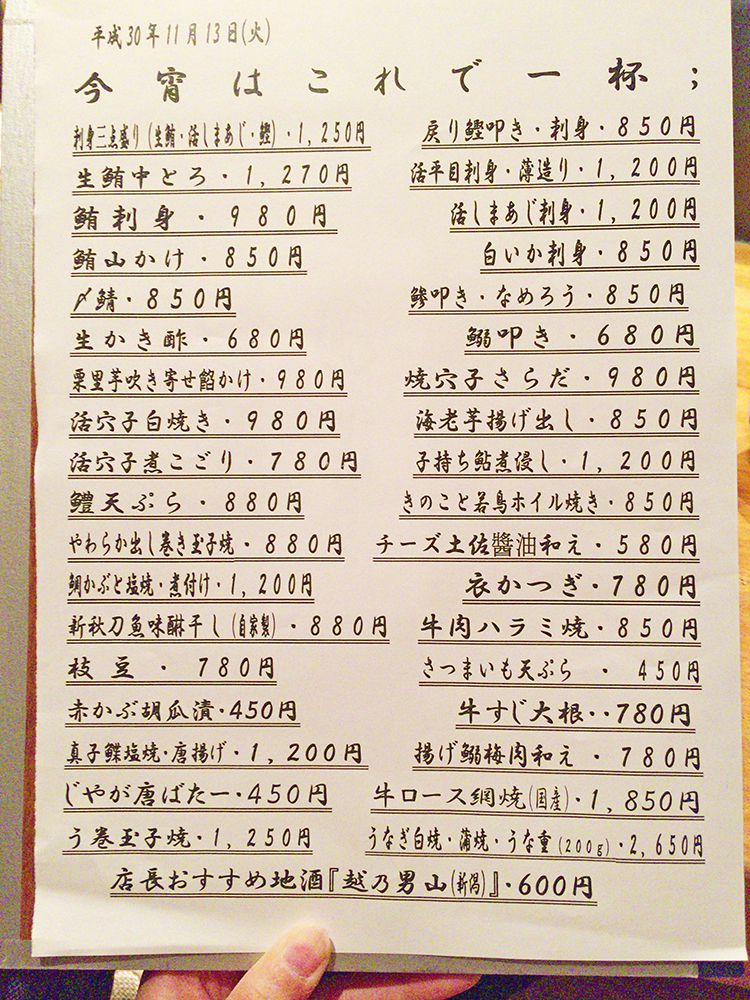 平成30年11月13日(火)
今宵はこれで一杯；
刺身三点盛り(生鮪・活しまあじ・鰹)・1,250円
生鮪中とろ・1,270円
鮪刺身・980円
鮪山かけ・850円
〆鯖・850円
生かき酢・680円
栗里芋吹き寄せ餡かけ・980円
活穴子白焼き・980円
活穴子煮こごり・780円
鱧天ぷら・880円
やわらか出し巻き玉子焼・880円
鯛かぶと塩焼・煮付け・1,200円
新秋刀魚味醂干し(自家製)・880円
枝豆・780円
赤かぶ胡瓜漬・450円
真子鰈塩焼・唐揚げ・1,200円
じやが唐ばたー・450円
う巻玉子焼・1,250円
戻り鰹叩き・刺身・850円
活平目刺身・薄造り・1,200円
活しまあじ刺身・1,200円
白いか刺身・850円
鯵叩き・なめろう・850円
鰯叩き・680円
焼穴子さらだ・980円
海老芋揚げ出し・850円
子持ち鮎煮浸し・1,200円
きのこと若鳥ホイル焼き・850円
チーズ土佐醬油和え・580円
衣かつぎ・780円
牛肉ハラミ焼・850円
さつまいも天ぷら・450円
牛すじ大根・・780円
揚げ鰯梅肉和え・780円
牛ロース網焼(国産)・1,850円
うなぎ白焼・蒲焼・うな重(200g)・2,650円
店長おすすめ地酒『越乃男山(新潟)』・600円